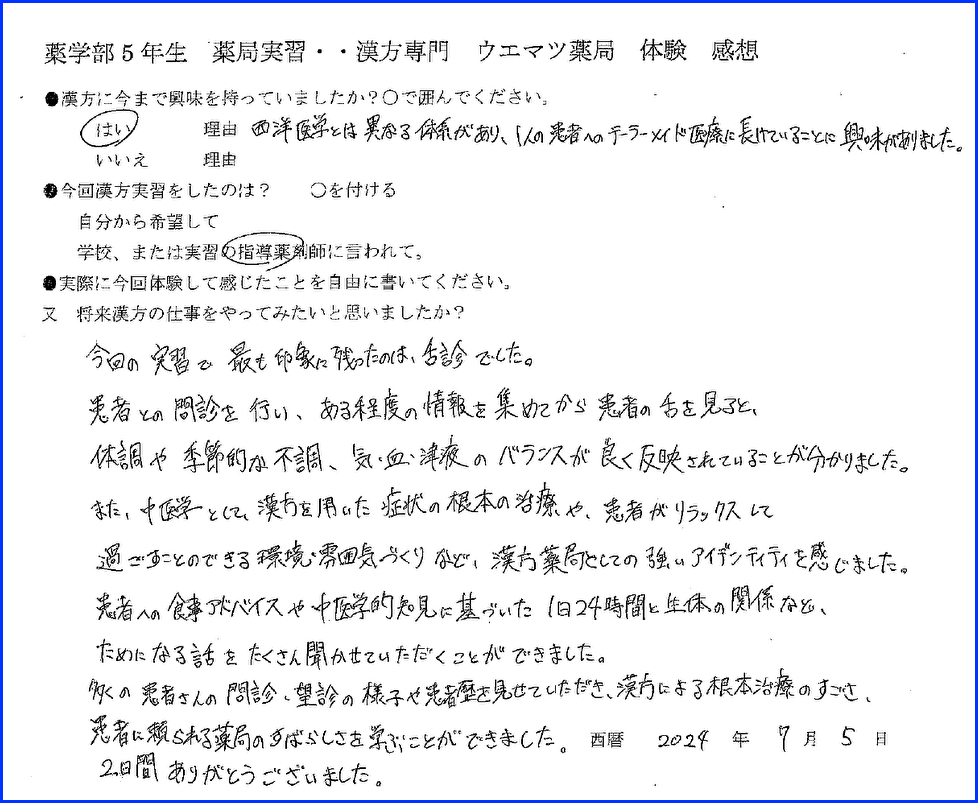 薬学部5年生　薬局実習・・漢方専門　ウエマツ薬局　体験　感想
●漢方に今まで興味を持っていましたか？〇で囲んでください。
はい　理由　西洋医学とは異なる体系があり、1人の患者へのテーラーメイド医療に長けていることに興味がありました。
いいえ　理由
●今回漢方実習をしたのは？　〇を付ける
自分から希望して
学校、または実習の指導薬剤師に言われて。
●実際に今回体験して感じたことを自由に書いてください。
又　将来漢方の仕事をやってみたいと思いましたか？
今回の実習で最も印象に残ったのは、舌診でした。
患者との問診を行い、ある程度の情報を集めてから患者の舌を見ると、
体調や季節的な不調、気・血・津液のバランスが良く反映されていることが分かりました。
また、中医学として、漢方を用いた症状の根本の治療や、患者がリラックスして
過ごすことのできる環境・雰囲気づくりなど、漢方薬局としての強いアイデンティティを感じました。
患者への食事アドバイスや中医学的知見に基づいた1日24時間と生体の関係など、
ためになる話をたくさん聞かせていただくことができました。
多くの患者さんの問診、望診の様子や患者歴を見せていただき、漢方による根本治療のすごさ、
患者に頼られる薬局のすばらしさを学ぶことができました。　西暦　2024　年　7　月　5　日
2日間ありがとうございました。